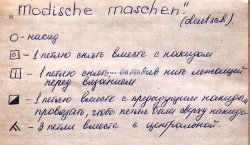 "Modische maschen."
(deutsch)
О - накид
1 петлю снять вместе с накидом
1 петлю снять, оставив нить лежащей
перед вязанием
- 1 петлю вместе с предыдущим накидом
провязать, чтобы петля была сверху накида
- 3 петли вместе с центральной